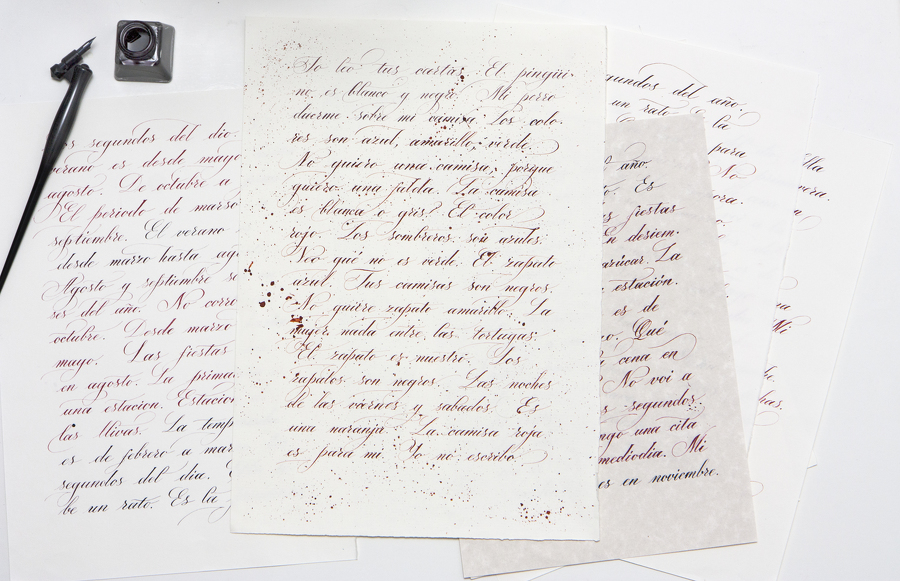 Yo leo tus cartas. El pingüi-
no es blanco y negro. Mi perro
duerme sobre mi camisa. Los colo-
res son azul, amarillo, verde.
No quiero una camisa, porque
quiero una falda. La camisa
es blanca o gris? El color
rojo. Los sombreros son azules.
Veo que no es verde. El zapato
azul. Tus camisas son negros.
No quiere zapato amarillo. La
mujer nada entre las tortugas.
El zapato es nuestri. Los
zapatos son negros. Las noches
de las viernes y sabados. Es
una naranja. La camisa roja
es para mi. Yo no escribo.
os segundos del dia.
verano es desde mayo
agosto. De octubre a
El periodo de marzo
septiembre. El verano
desde marzo hasta ago
Agosto y septiembre so
ses del año. No corro
octubre. Desde marzo
mayo. Las fiestas
en agosto. La prima
una estacion. Estacion
las lluvas. La temp
es de febrero a mar
segundos del dia.
be un rato. Es la
gundos del año.
un rato. la
para
No
ora.
año.
o. Es
fiestas
En desiem-
azúcar. La
estación.
es de
no. Qué
cena en
No voi a
s segundos.
ngo una cita
mediodia. Mi
es en noviembre.
lla
vera.
a
na
Mi
he
has.